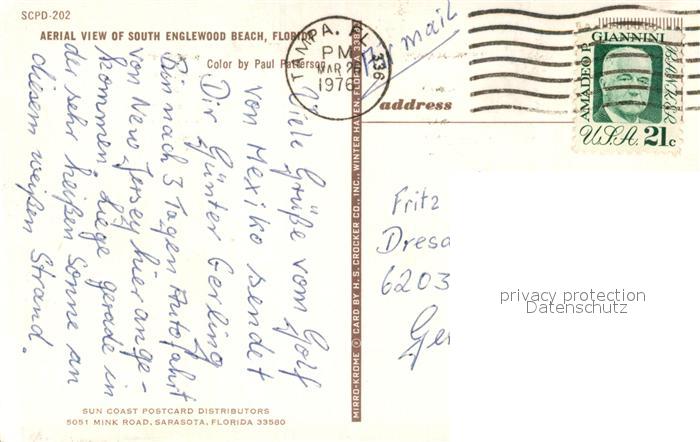 SCPD-202
AERIAL VIEW OF SOUTH ENGLEWOOD BEACH, FLORIDA
Color by Paul Patterson
Viele Grüße vom Golf
von Mexiko sendet
Dir Günter Gerling
Bin nach 3 Tagen Autofahrt
von New Jersey hier ange-
kommen. Liege gerade in
der sehr heißen Sonne an
diesem weißen Strand.
SUN COAST POSTCARD DISTRIBUTORS
5051 MINK ROAD, SARASOTA, FLORIDA 33580
MIRRO-KROME © CARD BY H. S. CROCKER CO., INC., WINTER HAVEN, FLORIDA 33880
TAMPA, FL 336
PM
MAR 2
1976
Air mail
AMADEO P. GIANNINI
BANKER
U.S.A. 21c
address
Fritz
Dresd
6203
Ger
privacy protection
Datenschutz